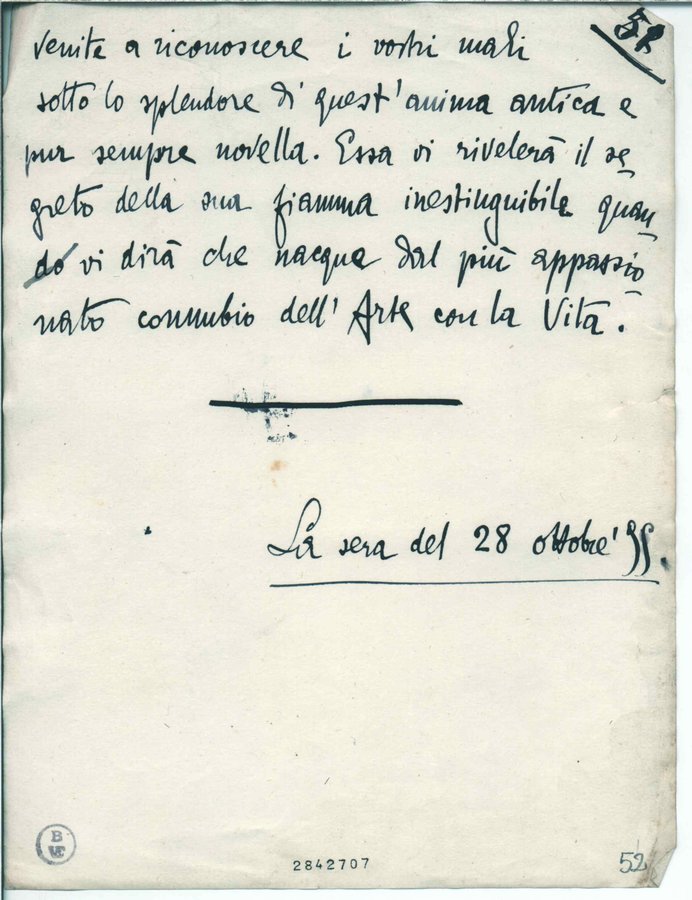 venite a riconoscere i vostri mali
sotto lo splendore di quest'anima antica e
pur sempre novella. Essa vi rivelerà il se
greto della sua fiamma inestinguibile quan
do vi dirà che nacque dal più appassio
nato connubio dell'Arte con la Vita.
La sera del 28 ottobre '95.
B
VE
2842707
52